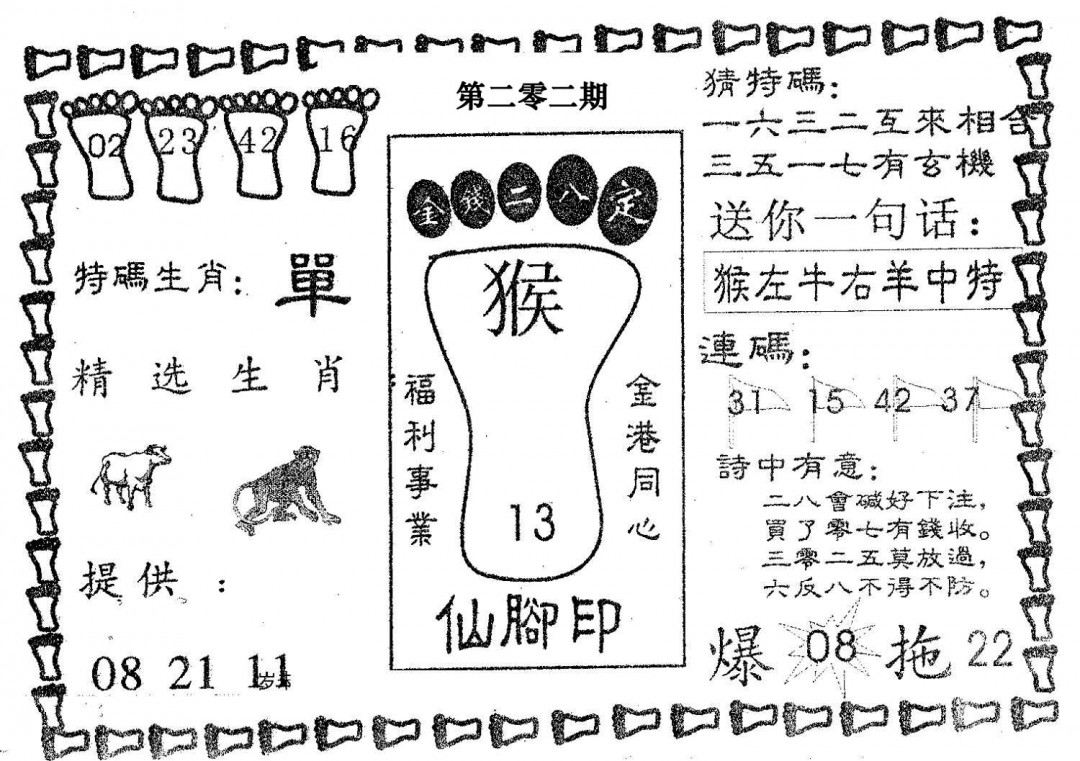 第二零二期
02 23 42 16
特碼生肖：單
精选生肖
提供：
08 21 11
金錢二八定
猴
13
福利事業
金港同心
仙腳印
猜特碼：
一六三二互來相合
三五一七有玄機
送你一句话：
猴左牛右羊中特
連碼：
31 15 42 37
詩中有意：
二八會碱好下注，
買了零七有錢收。
三零二五莫放過，
六反八不得不防。
爆 08 拖 22